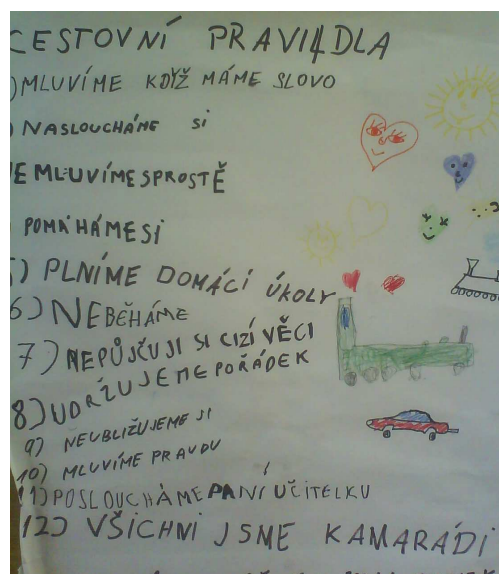 CESTOVNÍ PRAVIDLA
) MLUVÍME KDYŽ MÁME SLOVO
) NASLOUCHÁME SI
E MLUVÍME SPROSTĚ
POMÁHÁME SI
5) PLNÍME DOMÁCÍ ÚKOLY
6) NEBĚHÁME
7) NEPŮJČUJI SI CIZÍ VĚCI
8) UDRŽUJEME POŘÁDEK
9) NEUBLIŽUJEME SI
10) MLUVÍME PRAVDU
11) POSLOUCHÁME PANÍ UČITELKU
12) VŠICHNI JSME KAMARÁDI